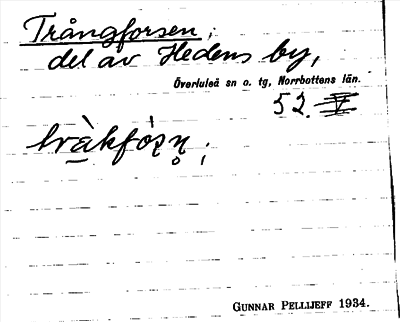 Trångforsen;
del av Hedens by,
Överluleå sn o. tg, Norrbottens län.
52.
GUNNAR PELLIJEFF 1934.